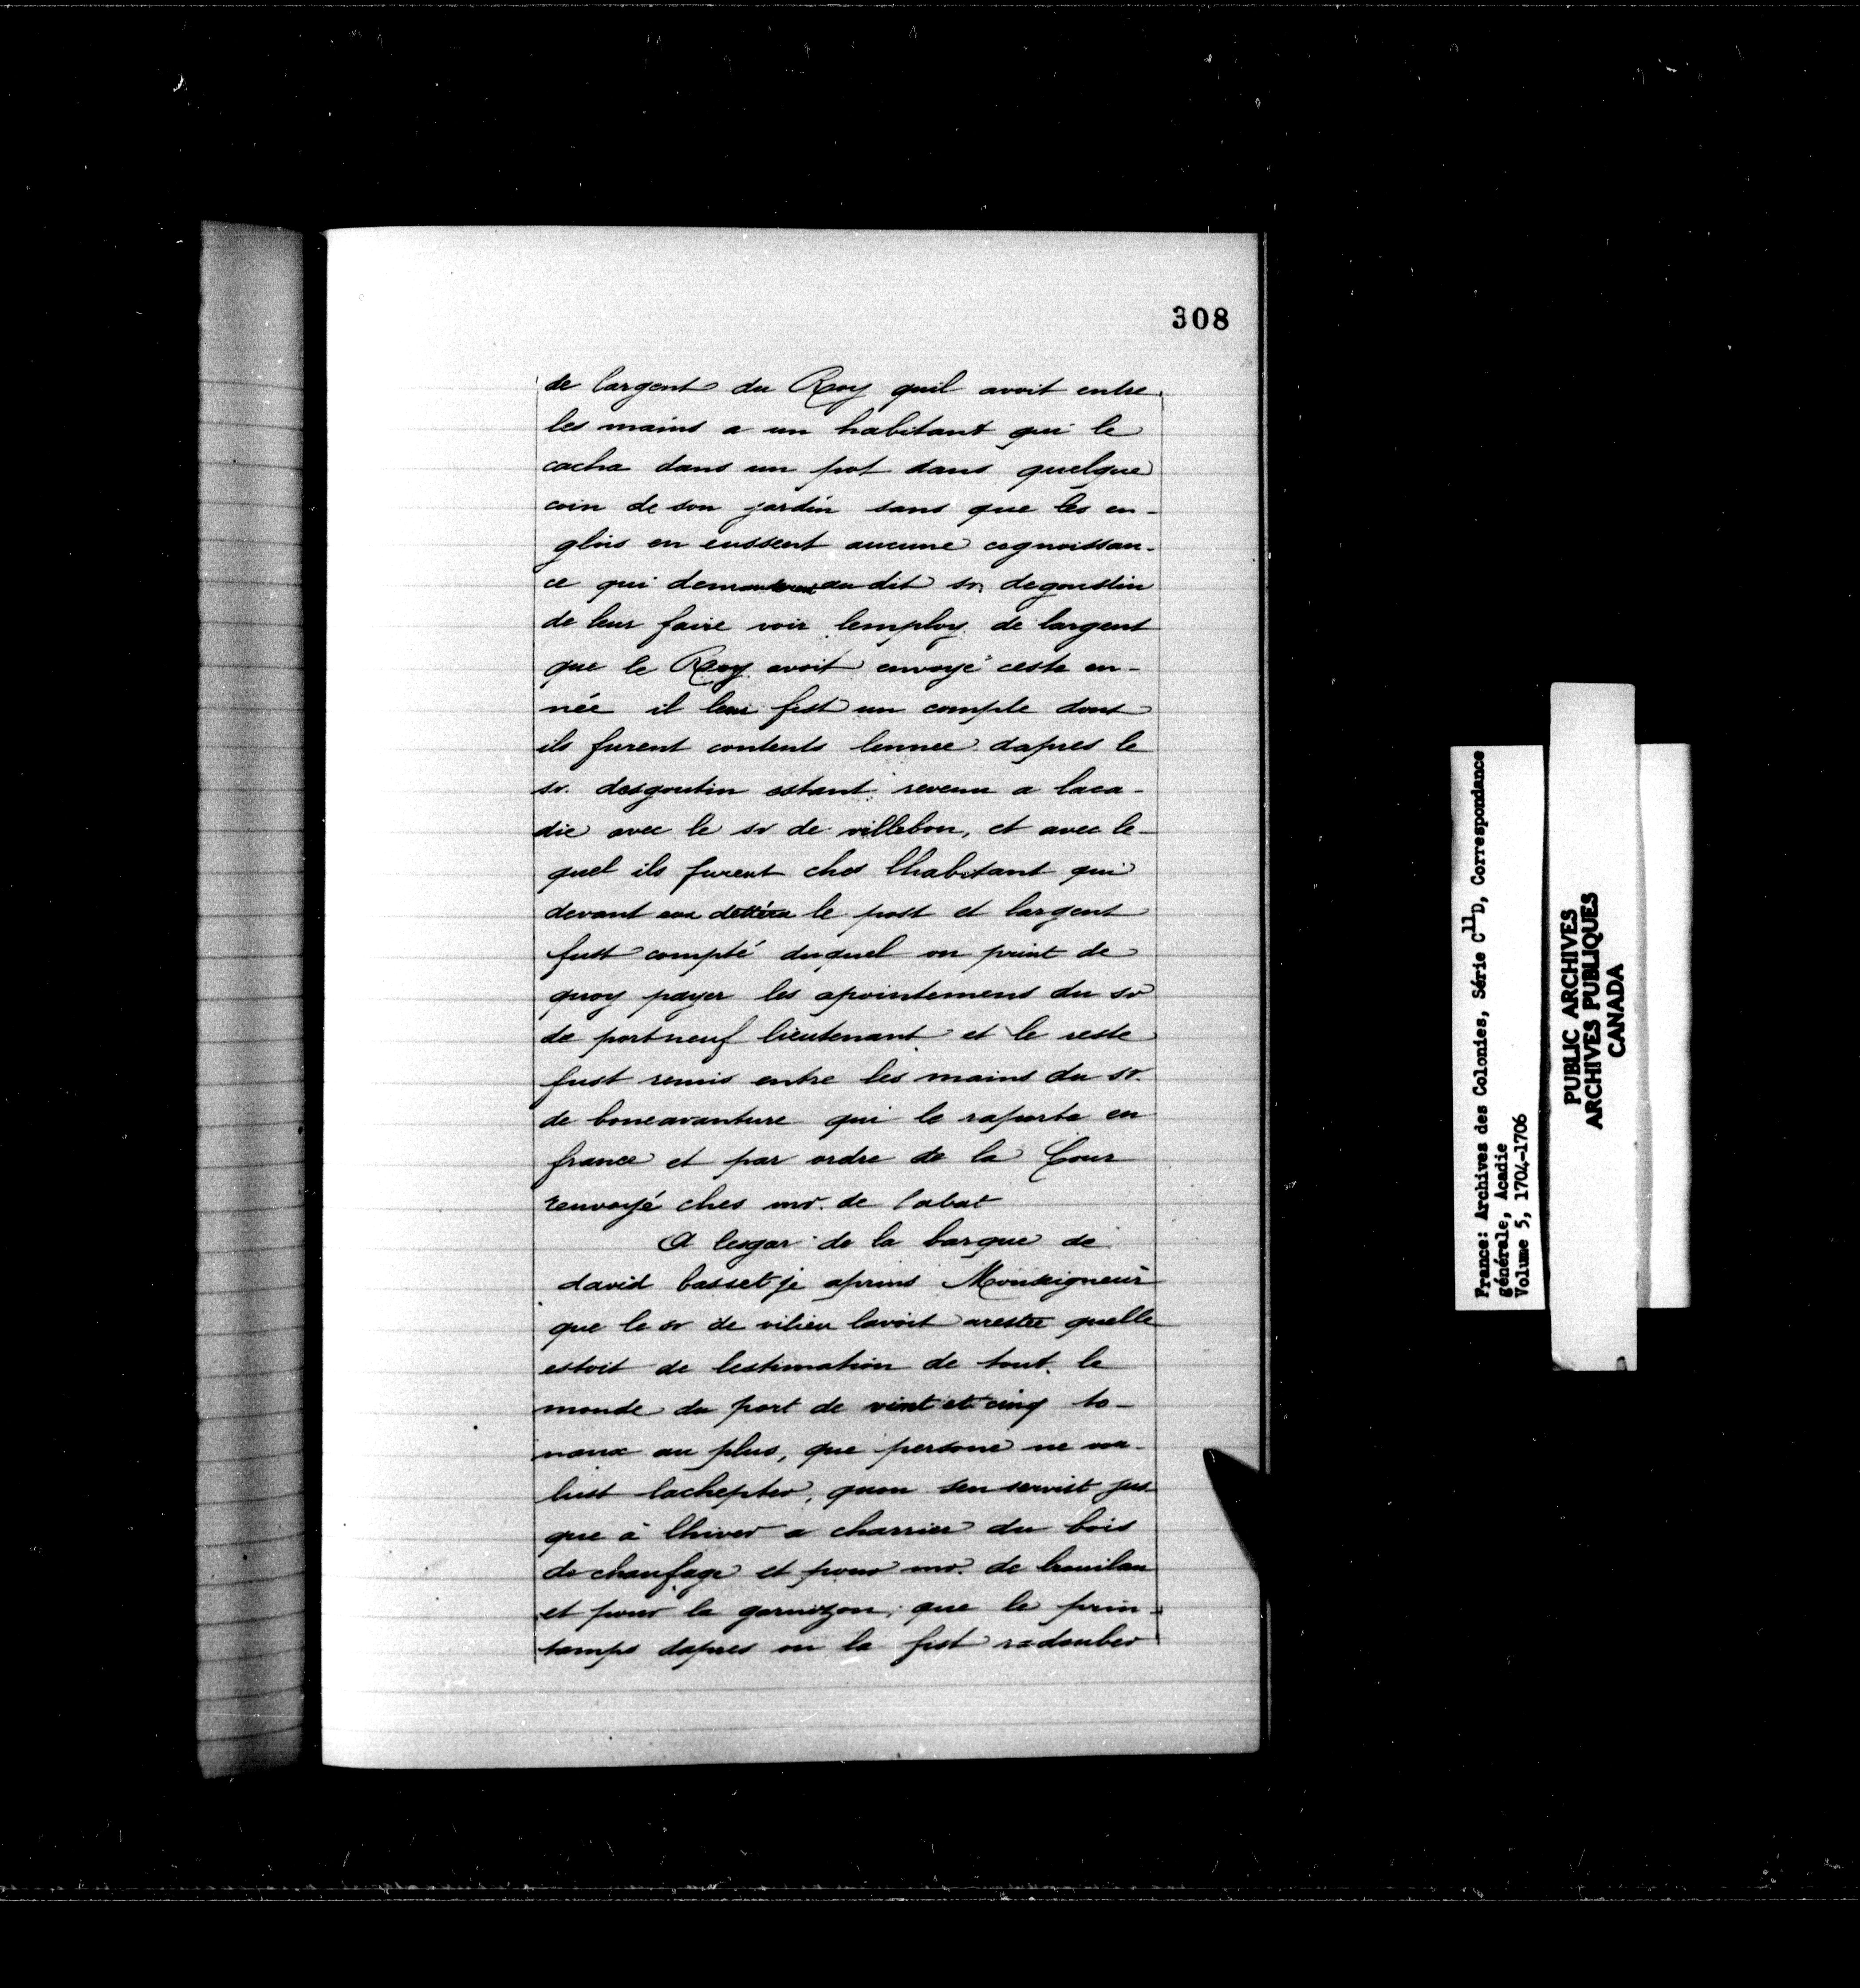 308
de largent du Roy quil avoit entre
les mains a un habitant qui le
cacha dans un pot dans quelque
coin de son jardin sans que les en-
glois en eussent aucune cognoissan-
ce qui dit sr degoustin
de leur faire voir lemploy de largent
que le Roy avoit envoyé ceste en-
née il leur fist un compte dont
ils furent contents lennee dapres le
sr. desgoutin estant revenu a laca-
die avec le sr de villebon, et avec le-
quel ils furent ches lhabitant qui
devant eux détéra le post et largent
fust compté duquel on print de
quoy payer les apointemens du sr
de portneuf lieutenant et le reste
fust remis entre les mains du sr.
de boneavanture qui le raporta en
france et par ordre de la Cour
renvoyé ches mr. de labat
A lesgar de la barque de
david basset je aprins Monseigneur
que le sr de vilieu lavoit arestee quelle
estoit de lestimation de tout le
monde du port de vint et cinq to-
naux au plus, que persone ne vou-
lust lachepter, quon sen servist jus
que à lhiver a charrier du bois
de chaufage et pour mr. de brouilan
et pour la garnizon, que le prin-
temps dapres on la fist radouber
France: Archives des Colonies, Série C11D, Correspondance
générale, Acadie
Volume 5, 1704-1706
PUBLIC ARCHIVES
ARCHIVES PUBLIQUES
CANADA